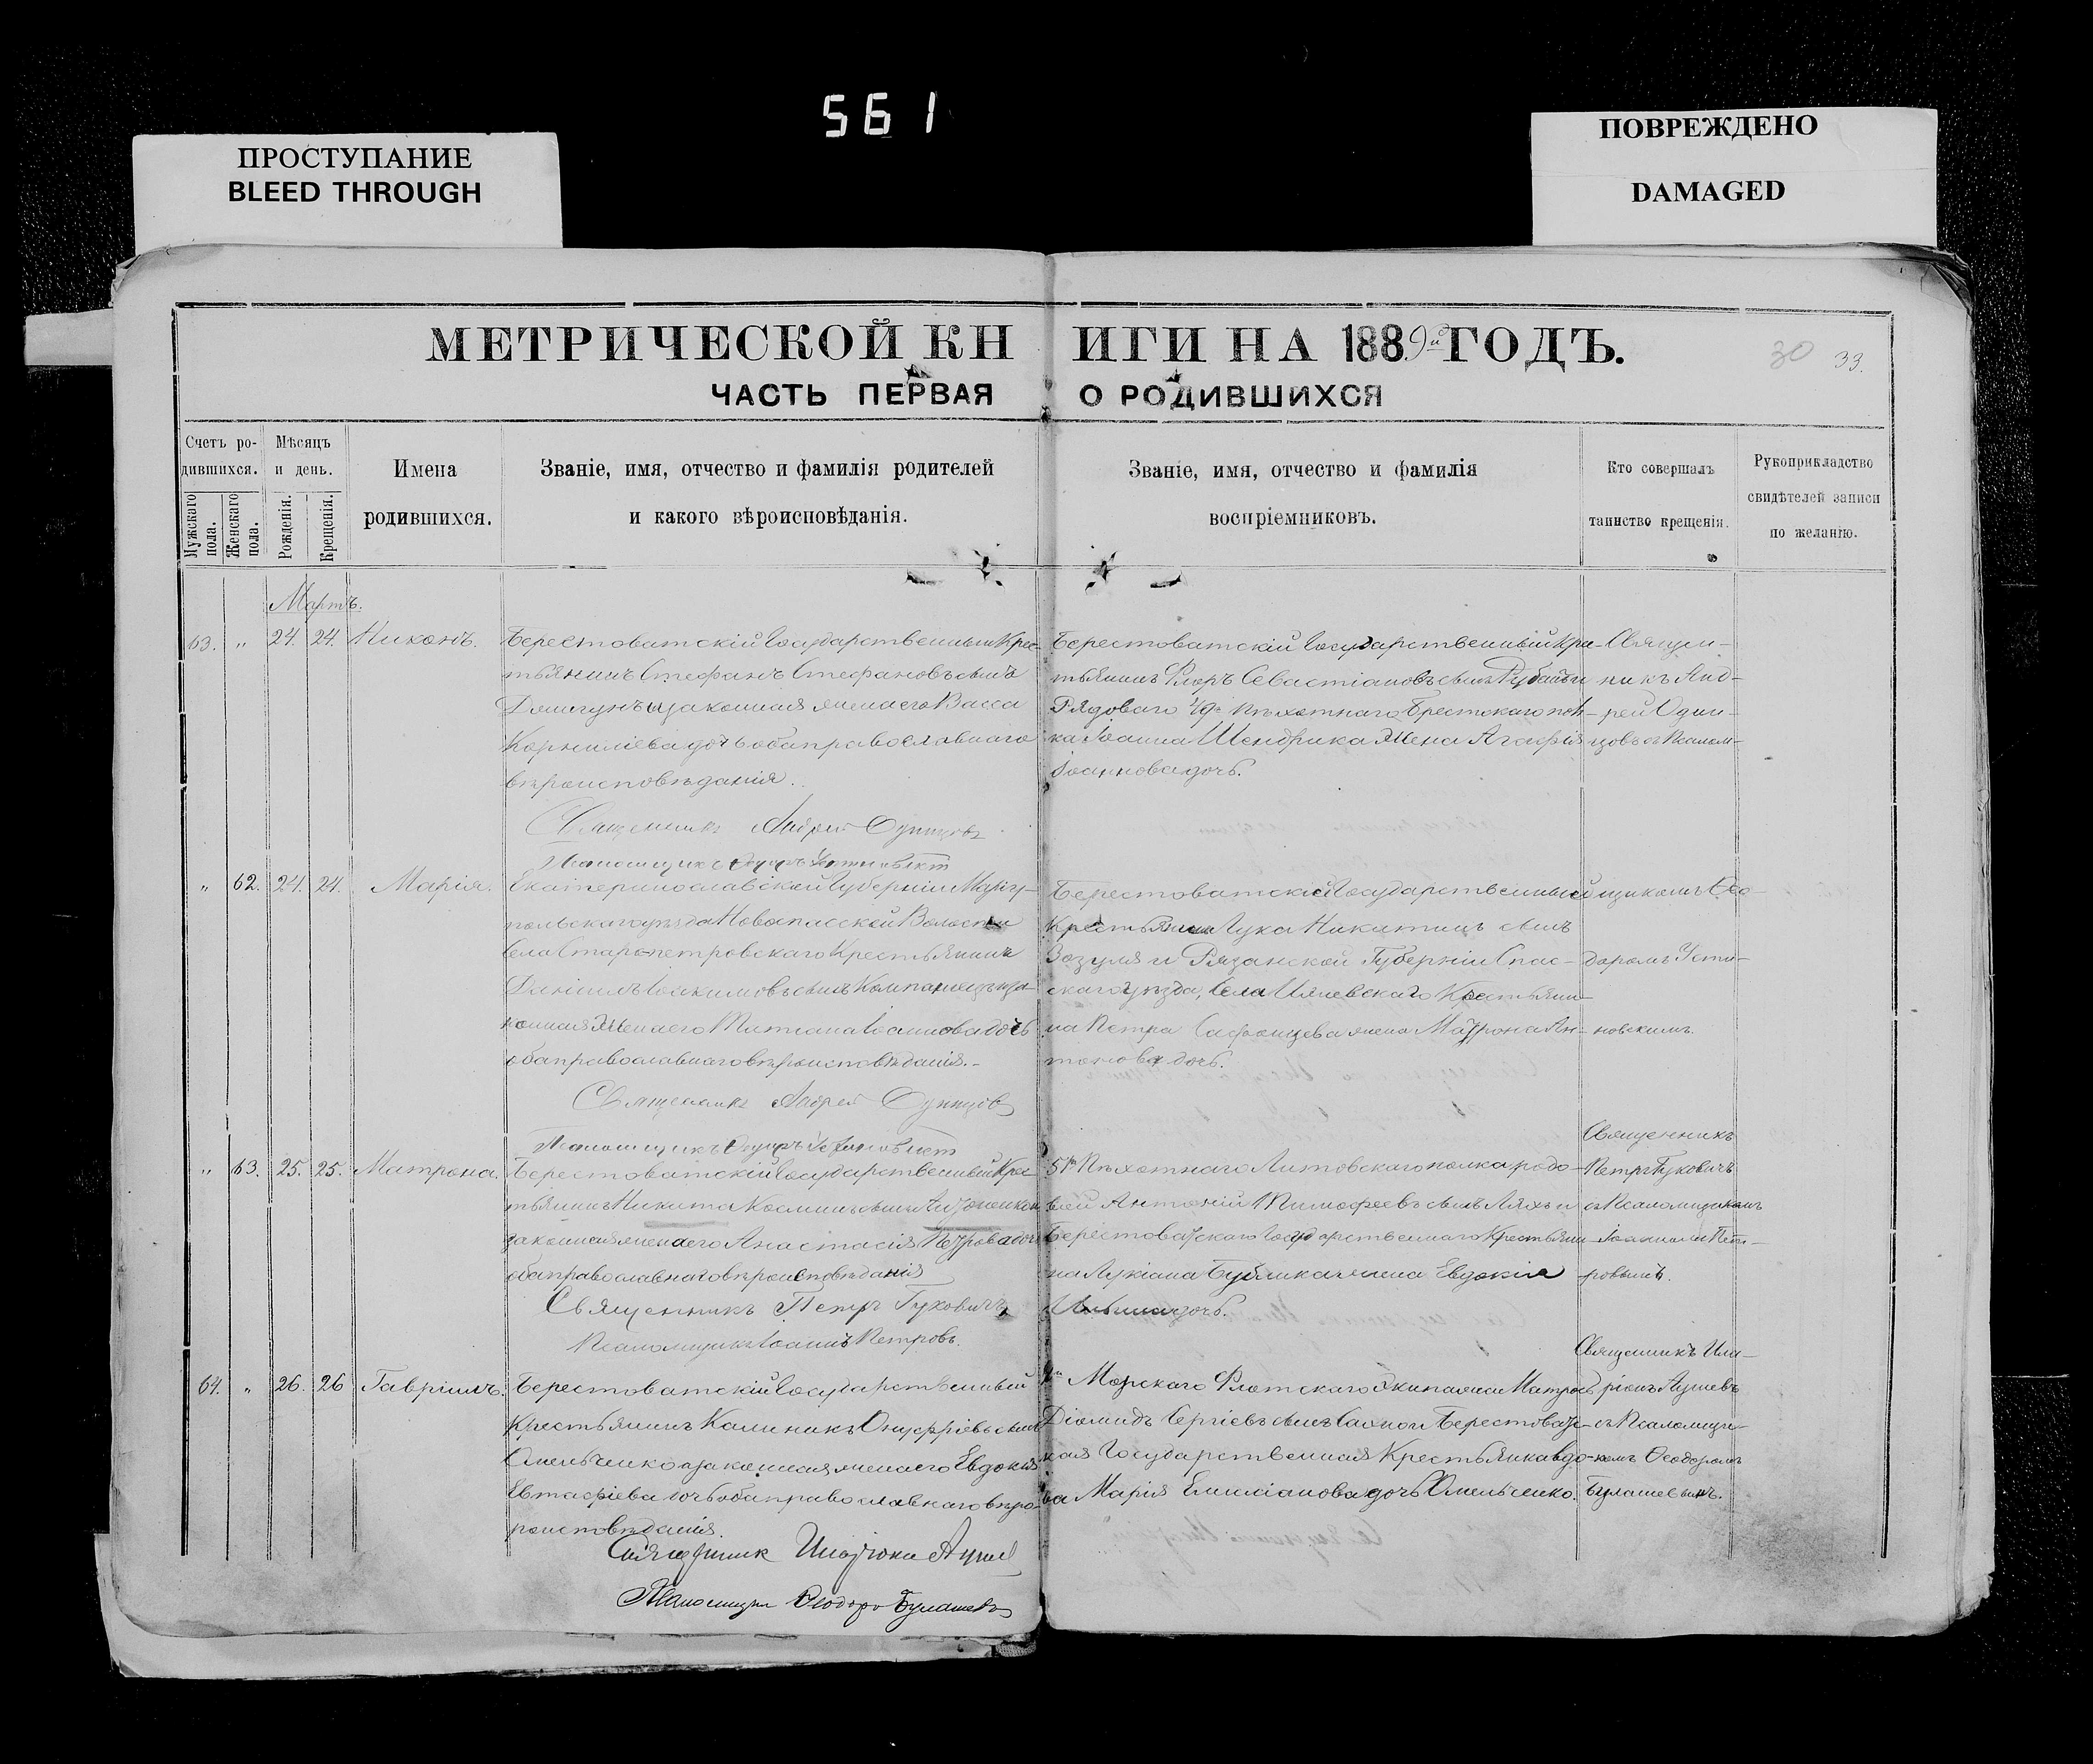 561
ПРОСТУПАНИЕ
BLEED THROUGH
ПОВРЕЖДЕНО
DAMAGED
МЕТРИЧЕСКОЙ КНИГИ НА 1889й ГОДЪ.
30 33.
ЧАСТЬ ПЕРВАЯ О РОДИВШИХСЯ
Счетъ ро-
дившихся.
Мужскаго пола.
Женскаго пола.
Мѣсяцъ
и день.
Рожденія.
Крещенія.
Имена
родившихся.
Званіе, имя, отчество и фамилія родителей
и какого вѣроисповѣданія.
Званіе, имя, отчество и фамилія
воспріемниковъ.
Кто совершалъ
таинство крещенія.
Рукоприкладство
свидѣтелей записи
по желанію.
Мартъ.
63. " 24. 24. Никонъ.
Берестоватскій Государственный Крес-
тьянинъ Стефанъ Стефановъ сынъ
и законная жена его Васса
Корниліева дочь оба православнаго
вѣроисповѣданія.
Священникъ Андрей Одинцовъ
Берестоватскій Государственный Кре-
стьянинъ Флоръ Севастіановъ сынъ
Рядоваго 49го Пѣхотнаго Брестскаго пол-
ка Іоанна Шендрика Жена Агафія
Іоаннова дочь.
Священ-
никъ Анд-
рей Один-
цовъ съ Псалом-
" 62. 24. 24. Марія.
Екатеринославской Губерніи Маріу-
польскаго уѣзда Новоспасской Волости
Села Старопетровскаго Крестьянинъ
Даніилъ Іоакимовъ сынъ Компаніецъ и за-
конная Жена его Татіана Іоаннова дочь
оба православнаго вѣроисповѣданія.
Священникъ Андрей Одинцовъ
Берестоватскій Государственный
Крестьянинъ Лука Никитинъ сынъ
Зозуля и Рязанской Губерніи Спас-
скаго уѣзда, Села Крестьяни-
на Петра жена Матрона Ан-
тонова дочь.
щикомъ Ѳео-
доромъ Усти-
новскимъ.
" 63. 25. 25. Матрона.
Берестоватскій Государственный Крес-
тьянинъ Никита Косминъ сынъ
законная жена его Анастасія Петрова дочь
оба православнаго вѣроисповѣданія
Священникъ Петръ Гуковичъ
Псаломщикъ Іоаннъ Петровъ.
51го Пѣхотнаго Литовскаго полка рядо-
вой Антоній Тимофеевъ сынъ Ляхъ и
Берестоватскаго Государственнаго Крестьяни-
на Лукіана Бублика жена Евдокія
дочь.
Священникъ
Петръ Гуковичъ
съ Псаломщикомъ
Іоанномъ Пет-
ровымъ.
64. " 26. 26 Гавріилъ.
Берестоватскій Государственный
Крестьянинъ Калиникъ Онуфріевъ сынъ
Омельченко и законная жена его Евдокія
Евстафіева дочь оба православнаго вѣро-
исповѣданія.
Священникъ
Псаломщикъ Ѳеодоръ Булашевъ
Морскаго Флотскаго Экипажа Матросъ
Діомидъ Сергіевъ сынъ и Берестоватс-
кая Государственная Крестьянка вдо-
ва Марія Емиліанова дочь Омельченко.
Священникъ Ила-
ріонъ
съ Псаломщи-
комъ Ѳеодоромъ